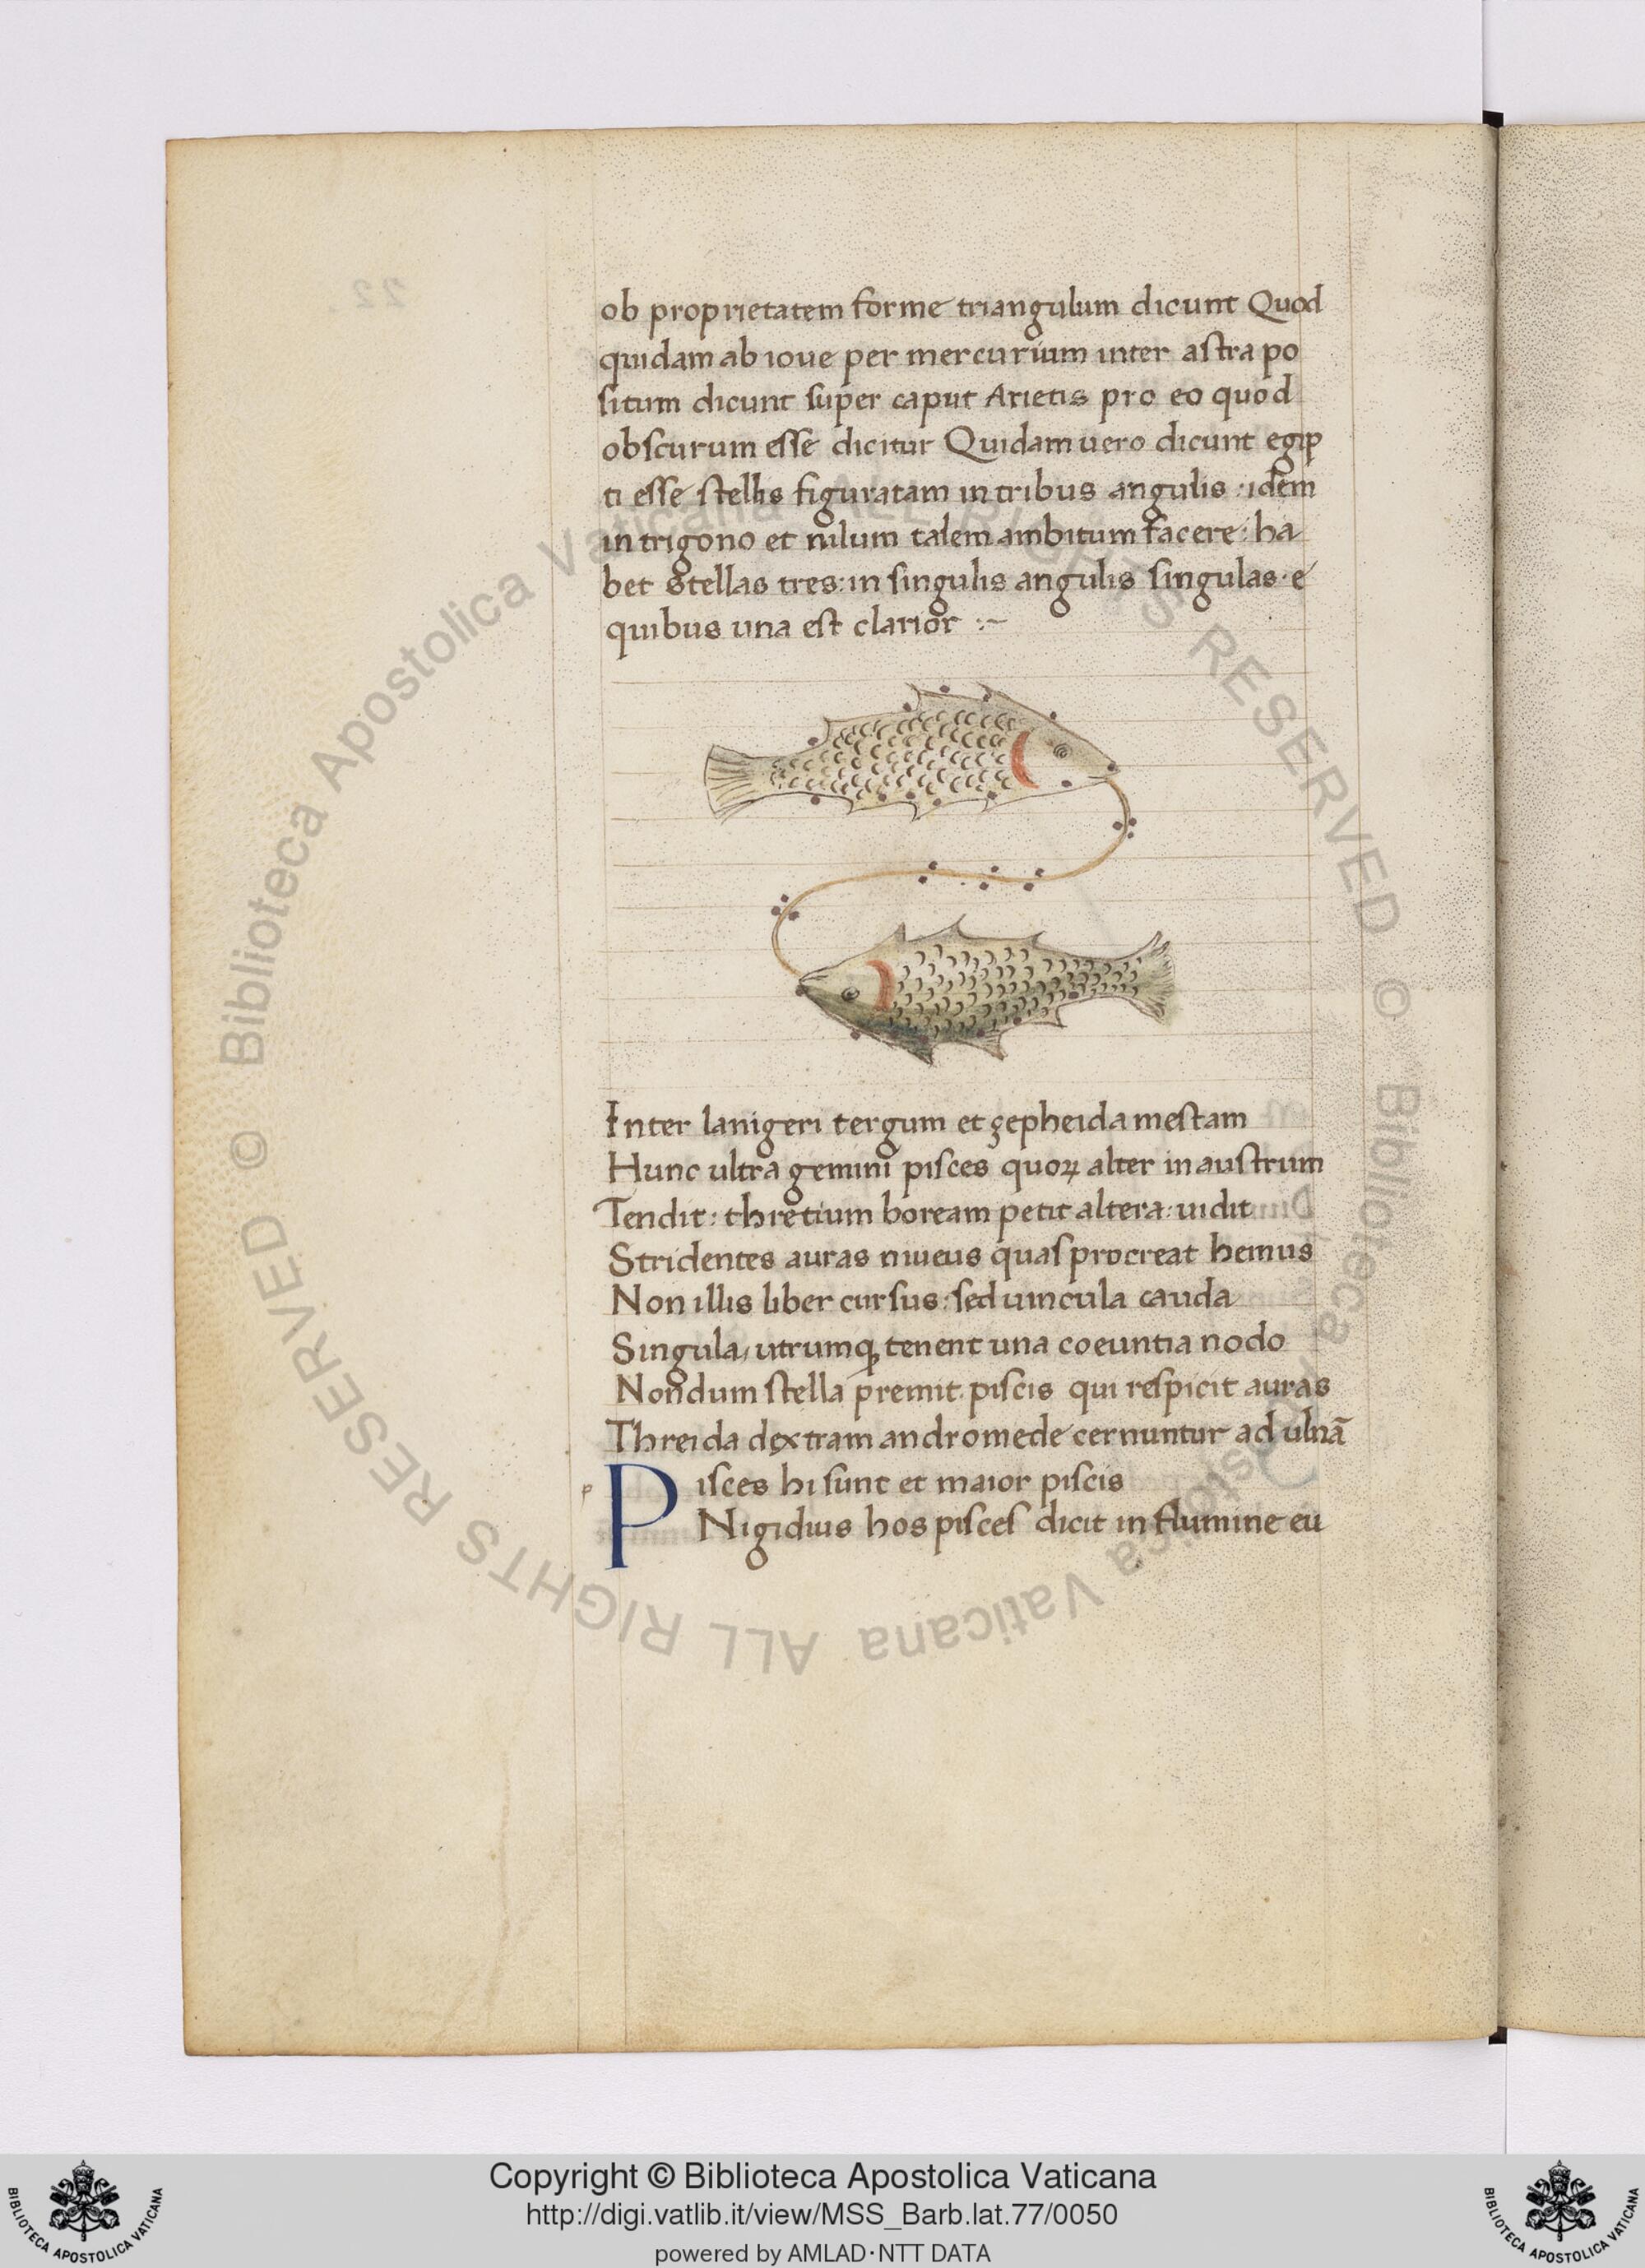 ob proprietatem forme triangulum dicunt Quod
quidam ab ioue per mercurium inter astra po
situm dicunt super caput Arietis pro eo quod
obscurum esse dicitur Quidam uero dicunt egip
ti esse stellis figuratam in tribus angulis : idem
in trigono et nilum talem ambitum facere : ha
bet Stellas tres : in singulis angulis singulas · e
quibus una est clarior :~
Inter lanigeri tergum et çepheida mestam
Hunc ultra gemini pisces quoꝝ alter in austrum
Tendit : thretium boream petit altera : uidit
Stridentes auras niueus quas procreat hemus
Non illis liber cursus : sed uincula cauda
Singula, utrumqꝫ tenent una coeuntia nodo
Nondum stella premit piscis qui respicit auras
Threida dextram andromede cernuntur ad ulnā
p Pisces hi sunt et maior piscis
Nigidius hos pisces dicit in flumine eu
22
© Biblioteca Apostolica Vaticana ALL RIGHTS RESERVED © Biblioteca Apostolica Vaticana ALL RIGHTS RESERVED
Copyright © Biblioteca Apostolica Vaticana
http://digi.vatlib.it/view/MSS_Barb.lat.77/0050
powered by AMLAD·NTT DATA
BIBLIOTECA APOSTOLICA VATICANA
BIBLIOTECA APOSTOLICA VATICANA